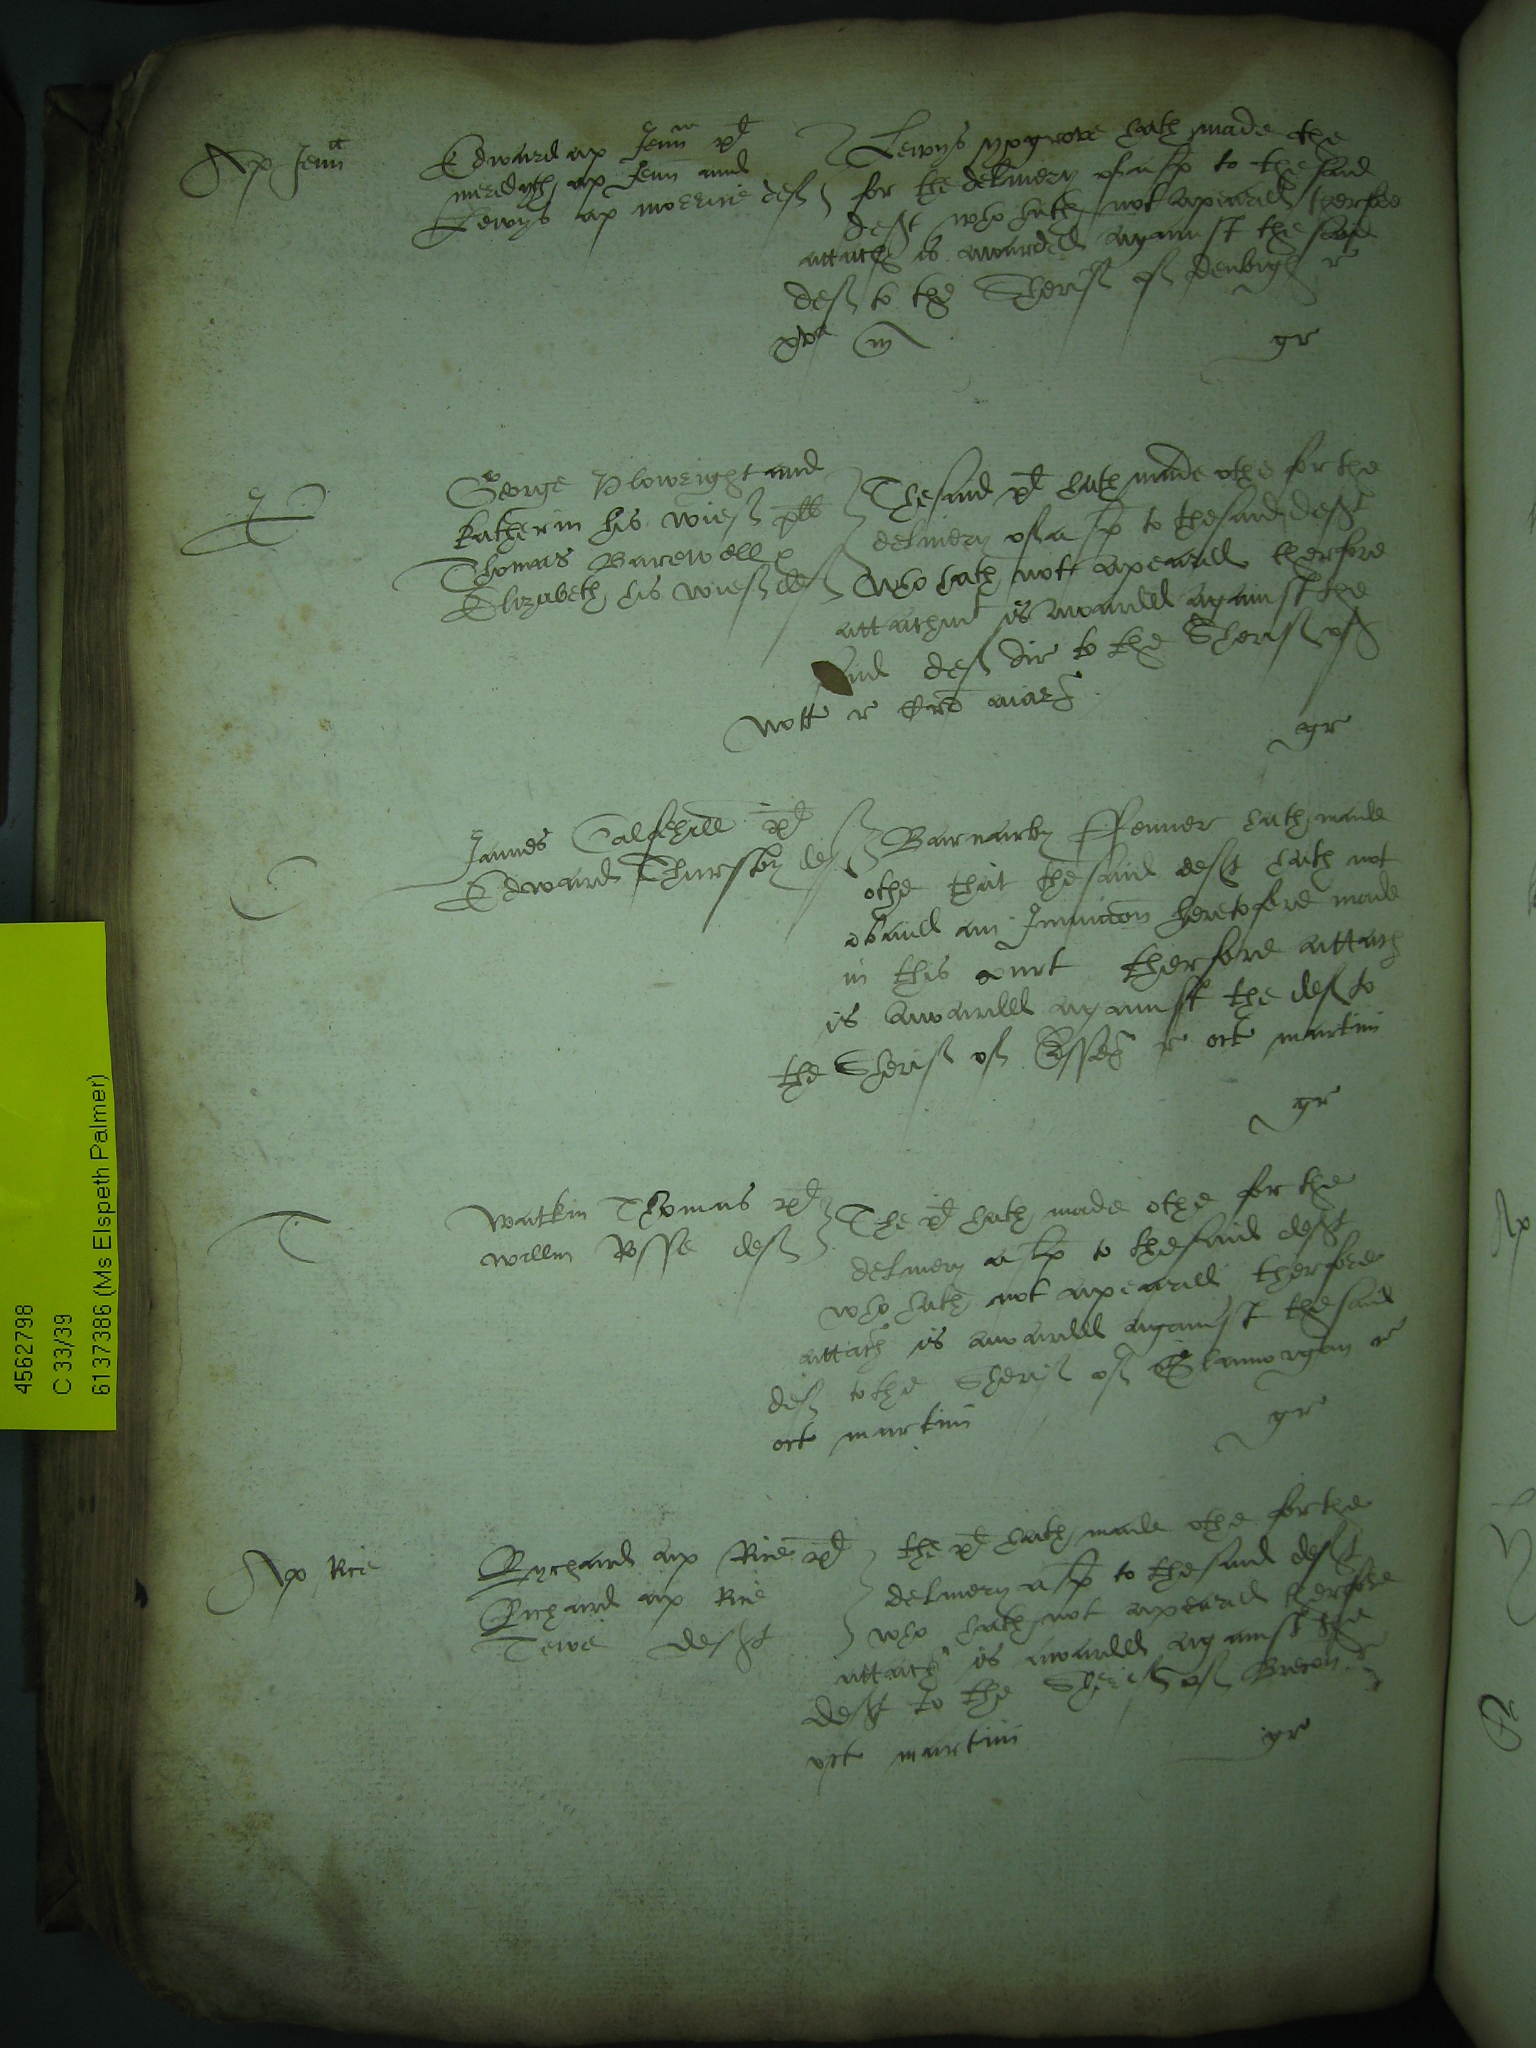 Ap Jeun
Edward ap Jeun pl
meredyth ap Jeun and
Lewys ap morrice def
Lewys hath made othe
for the delivery of a sp to the said
deft who hath not apeared therfore
attach is awarded against the said
def to the Sherif of denbigh r
xva m
gr
George Plowright and
Katherin his wief pll
Thomas Barewell &
Elizabeth his wief def
The said pl hath made othe for the
delivery of a sp to the said deft
who hath not apeared therfore
attachmt is awarded against the
said def dir to the Sherif of
Nott r Cro aiar
gr
C
James Calfehill pl
Edward Thursby def
Barnarby Ffenner hath made
othe that the said deft hath not
obaied an Iniuncon heretofore made
in this court therfore attach
is awarded against the def to
the Sherif of Essex r oct martini
gr
T
Watkin Thomas pl
Willm Rosse def
The pl hath made othe for the
delivery a sp to the said deft
who hath not apeared therfore
attach is awarded against the said
def to the Sherif of Glamorgan r
oct martini
gr
Ap Rice
Rychard ap Rice pl
Richard ap Rice
Tewe deft
the pl hath made othe for the
delivery a sp to the said deft
who hath not apeared therfore
attach is awarded against the
deft to the Sherif of Brecon r
oct martini
gr
4562798
C 33/39
6137386 (Ms Elspeth Palmer)
Ap